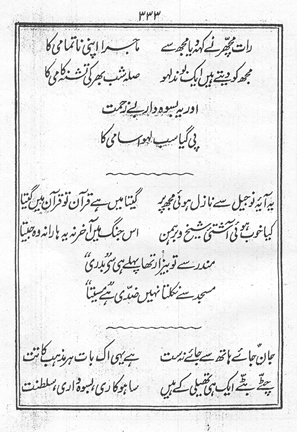 ۳۳۳
رات مچھر نے کہہ دیا مجھ سے ماجرا اپنی ناتمامی کا
مجھ کو دیتے ہیں ایک بوند لہو صلہ شب بھر کی تشنہ کامی کا
اور یہ بسوہ دار بے زحمت
پی گیا سب لہو اسامی کا
یہ آیۂ نو جیل سے نازل ہوئی مجھ پر گیتا میں ہے قرآن تو قرآن میں گیتا
کیا خوب ہوئی آشتیِ شیخ و برہمن اس جنگ میں آخر نہ یہ ہارا نہ وہ جیتا
مندر سے تو بیزار تھا پہلے ہی سے "بدری"
مسجد سے نکلتا نہیں ضدی ہے "مسیتا"
جان جائے ہاتھ سے جائے نہ ست ہے یہی اک بات ہر مذہب کا تت
چٹے بٹے ایک ہی تھیلی کے ہیں ساہوکاری، بسوہ داری، سلطنت